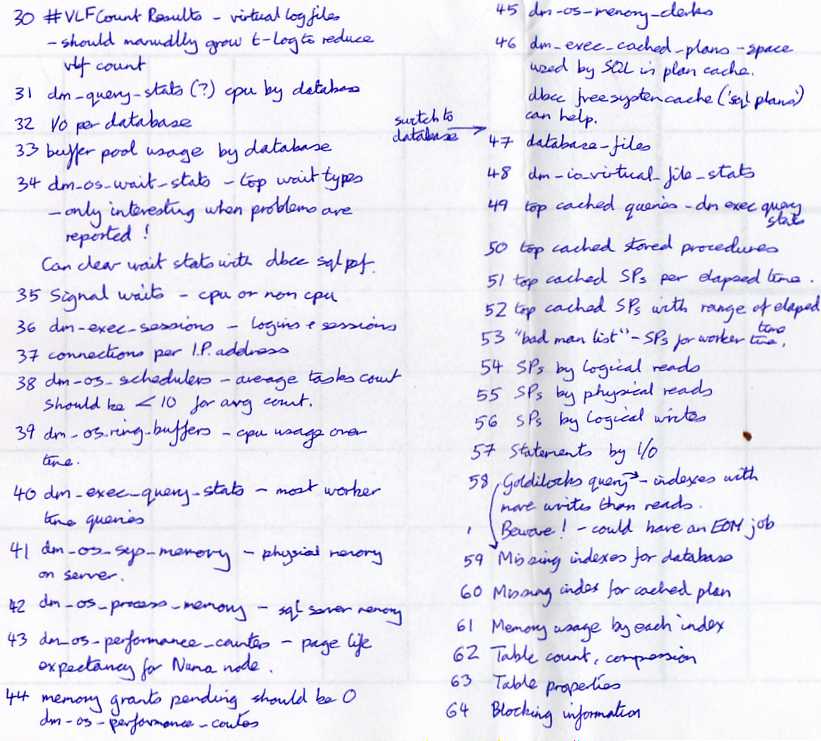 30 #VLFCount Results - virtual log files
- should manually grow t-log to reduce
vlf count
31 dm_query_stats (?) cpu by database
32 I/O per database
33 buffer pool usage by database
34 dm_os_wait_stats - top wait types
- only interesting when problems are
reported!
Can clear wait stats with dbcc sqlperf.
35 Signal waits - cpu or non cpu
36 dm_exec_sessions - logins + sessions
37 connections per I.P. address
38 dm_os_schedulers - average tasks count
should be < 10 for avg count.
39 dm_os_ring_buffers - cpu usage over
time.
40 dm_exec_query_stats - most worker
time queries
41 dm_os_sys_memory - physical memory
on server.
42 dm_os_process_memory - sql server memory
43 dm_os_performance_counters - page life
expectancy for Numa node.
44 memory grants pending should be 0
dm_os_performance_counters
45 dm_os_memory_clerks
46 dm_exec_cached_plans - space
used by SQL in plan cache.
dbcc freesystemcache ('sql plans')
can help.
switch to
database →
47 database_files
48 dm_io_virtual_file_stats
49 top cached queries - dm exec query
stats
50 top cached stored procedures
51 top cached SPs per elapsed time.
52 top cached SPs with range of elapsed
time
53 "bad man list" - SPs for worker time.
54 SPs by logical reads
55 SPs by physical reads
56 SPs by logical writes
57 Statements by I/O
58 Goldilocks query → - indexes with
more writes than reads.
Beware! - could have an EOM job
59 Missing indexes for database
60 Missing index for cached plan
61 Memory usage by each index
62 Table count, compression
63 Table properties
64 Blocking information